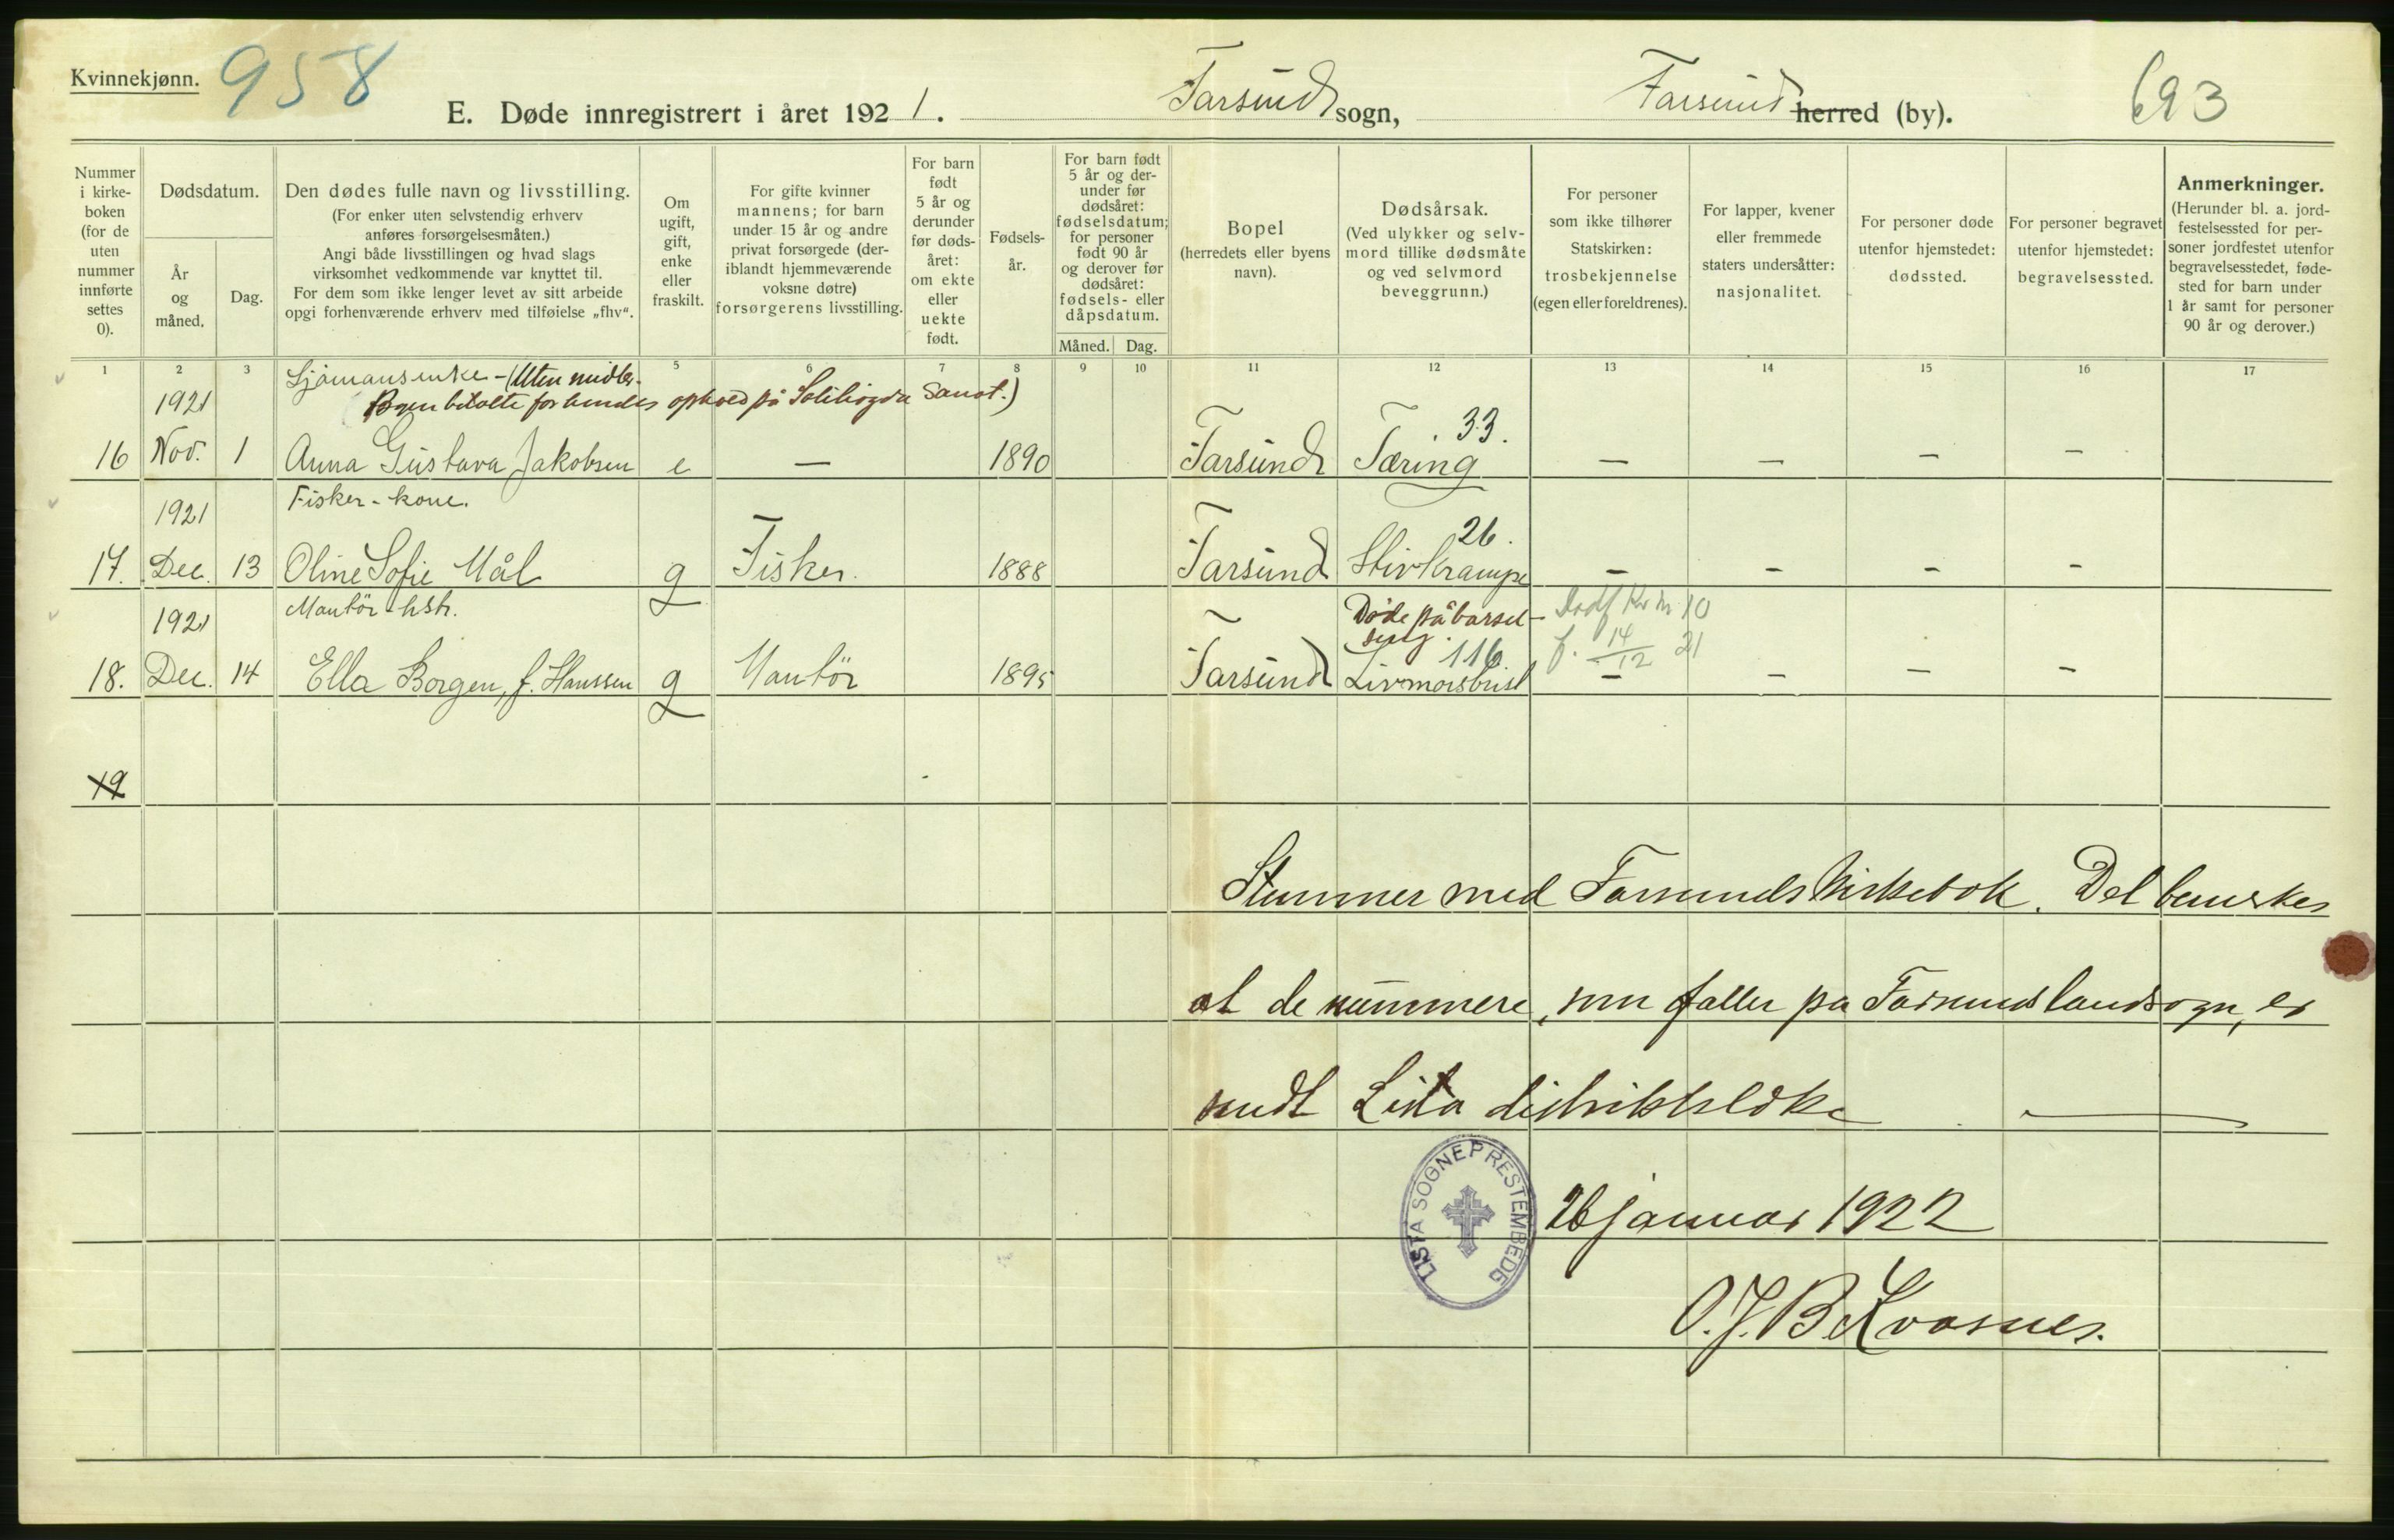 Kvinnekjønn. 958
E. Døde innregistrert i året 1921. Farsund sogn, Farsund herred (by). 693
Nummer i kirkeboken (for de uten nummer innførte settes 0).
Dødsdatum.
År og måned.
Dag.
Den dødes fulle navn og livsstilling.
(For enker uten selvstendig erhverv
anføres forsørgelsesmåten.)
Angi både livsstillingen og hvad slags
virksomhet vedkommende var knyttet til.
For dem som ikke lenger levet av sitt arbeide
opgi forhenværende erhverv med tilføielse „fhv“.
Om ugift, gift, enke eller fraskilt.
For gifte kvinner
mannens; for barn
under 15 år og andre
privat forsørgede (der-
iblandt hjemmeværende
voksne døtre)
forsørgerens livsstilling.
For barn
født
5 år og
derunder
før døds-
året:
om ekte
eller
uekte
født.
Fødsels-
år.
For barn født
5 år og der-
under før
dødsåret:
fødselsdatum;
for personer
født 90 år
og derover før
dødsåret:
fødsels- eller
dåpsdatum.
Måned. Dag.
Bopel
(herredets eller byens
navn).
Dødsårsak.
(Ved ulykker og selv-
mord tillike dødsmåte
og ved selvmord
beveggrunn.)
For personer
som ikke tilhører
Statskirken:
trosbekjennelse
(egen eller foreldrenes).
For lapper, kvener
eller fremmede
staters undersåtter:
nasjonalitet.
For personer døde
utenfor hjemstedet:
dødssted.
For personer begravet
utenfor hjemstedet:
begravelsessted.
Anmerkninger.
(Herunder bl. a. jord-
festelsessted for per-
soner jordfestet utenfor
begravelsesstedet, føde-
sted for barn under
1 år samt for personer
90 år og derover.)
1 2 3 5 6 7 8 9 10 11 12 13 14 15 16 17
Sjømansenke - (Uten midler.
Byen betalte for hendes ophold på Sanat.)
1921 33.
16 Nov. 1 Anna Gustava Jakobsen e — 1890 Farsund Tæring — — — —
Fisker-kone.
1921 26.
17. Dec. 13 Oline Sofie Mål g Fisker. 1888 Farsund Stivkrampe — — — —
Montør-hstr. Døde på barsel-
1921 seng. 116.
Kv. nr 10
f. 14/12 21
18. Dec. 14 Ella Borgen, f. Hanssen g Montør 1895 Farsund Livmorsbrist — — — —
19
Stemmer med Farsunds kirkebok. Det bemerkes
at de nummere, som faller på Farsunds landsogn, er
sendt Lista distriktslæke
LISTA SOGNEPRESTEMBEDE
26 januar 1922
O. J. B. Kvasnes.